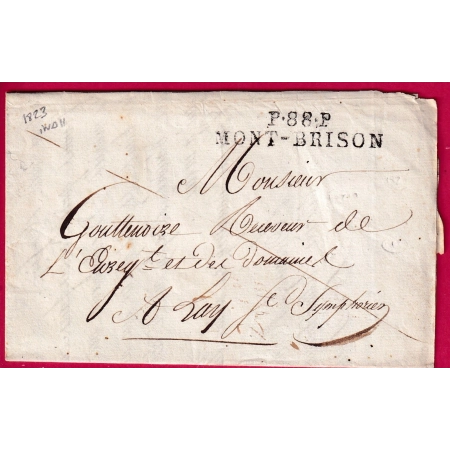 1823
P.88.P
MONT-BRISON
Monsieur
Gouttenoize Receveur de
L'Enregt. et des Domaines
A Lay St. Symphorien